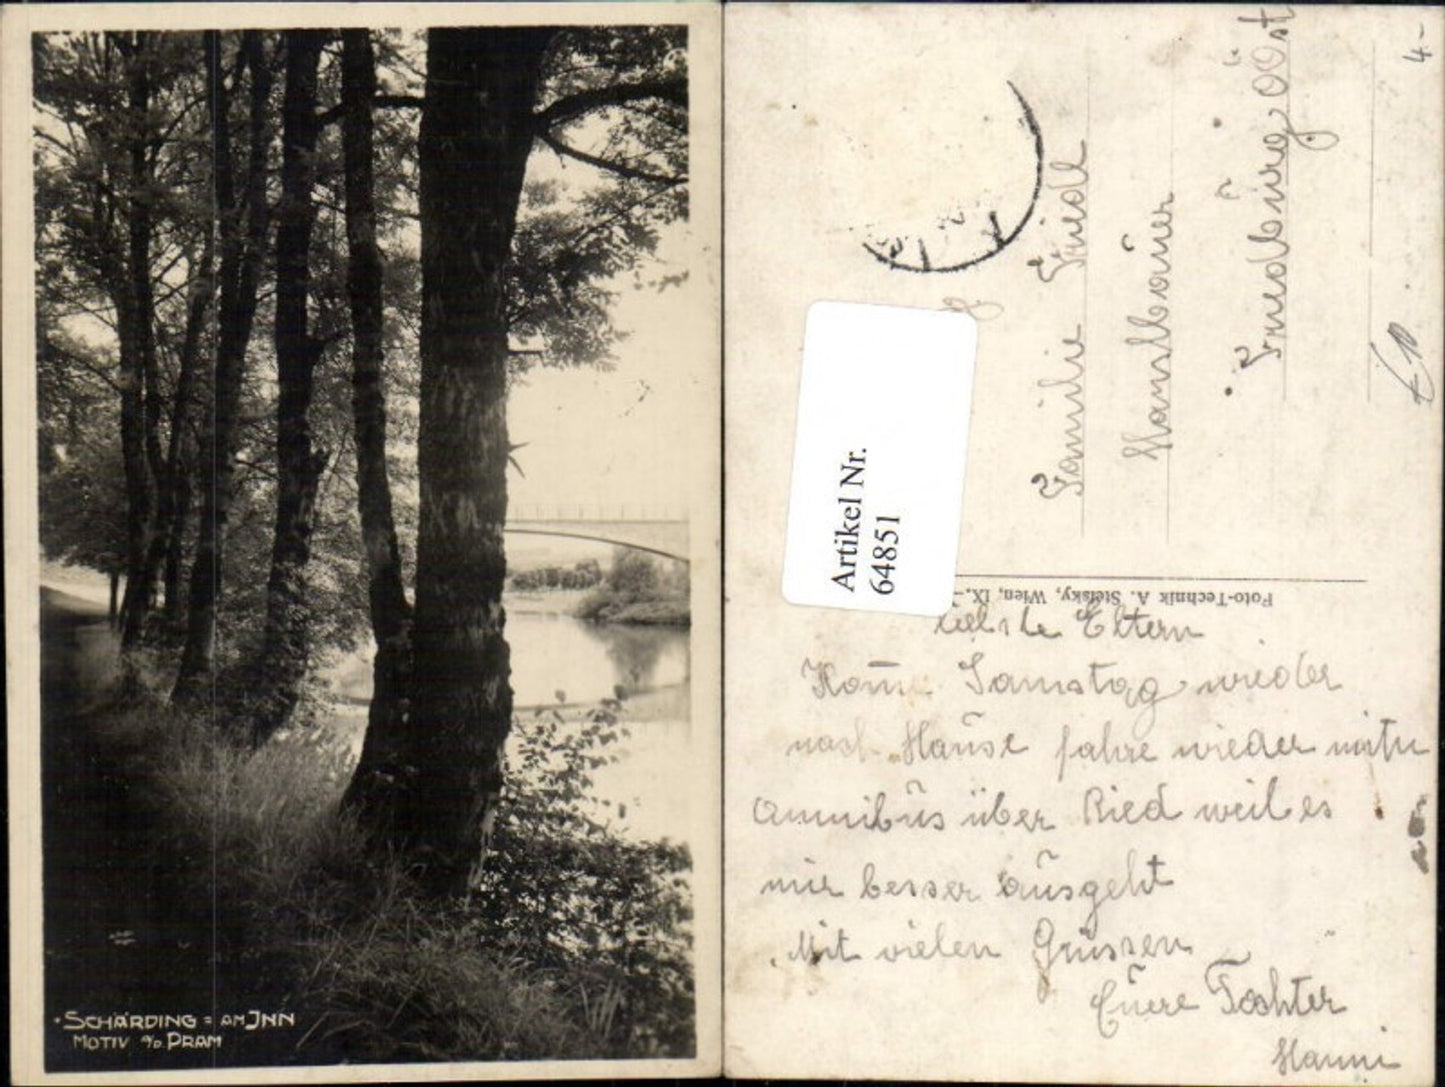 SCHÄRDING = AM JNN
MOTIV a/D. PRAM
Artikel Nr.
64851
Familie Friedl
Hanslbauer
Friedburg OÖst
4.-
Foto-Technik A. Stefsky, Wien, IX.
Liebste Eltern
Kome Samstag wieder
nach Hause fahre wieder mitn
Omnibus über Ried weil es
mir besser ausgeht
Mit vielen Grüssen
Euere Tochter
Hanni